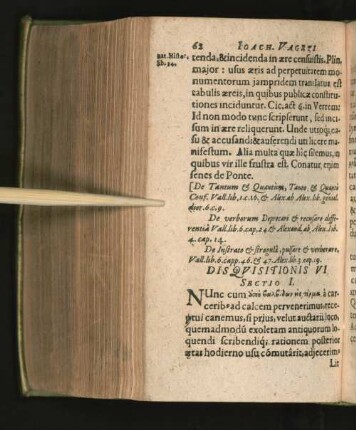 62 IOACH. VAGETI
nat. Histor.
lib. 34.
tenda, & incidenda in ære censuistis. Plin.
major: usus æris ad perpetuitatem mo-
numentorum jampridem translatus est
tabulis æreis, in quibus publicæ constitu-
tiones inciduntur. Cic. act. 6. in Verrem:
Id non modo tunc scripserunt, sed inci-
sum in ære reliquerunt. Unde utroq; ca-
su & accusandi & auferendi uti licere ma-
nifestum. Alia multa quæ hîc silemus, in
quibus vir ille frustra est. Conatur enim
senes de Ponte.
[De Tantum & Quantum, Tanto & Quanto
Conf. Vall. lib. 2.c.16, & Alex. ab Alex. lib. genial.
dier. 6.c.9.
De verborum Deprecari & recusare diffe-
rentiâ Vall. lib. 6. cap. 24. & Alexand. ab Alex. lib.
4. cap. 14.
De Instrato & stragula, pulsare & verberare,
Vall. lib. 6. capp. 46. & 47. Alex. lib. 3. cap. 19.
DISQVISITIONIS VI
SECTIO I.
NUnc cum à car-
ceribus ad calcem pervenerimus, rece-
ptui canemus, si prius, velut auctarii loco,
quemadmodũ exoletam antiquorum lo-
quendi scribendiq; rationem posterior
ætas hodierno usu cõmutârit, adjecerim9
Lit